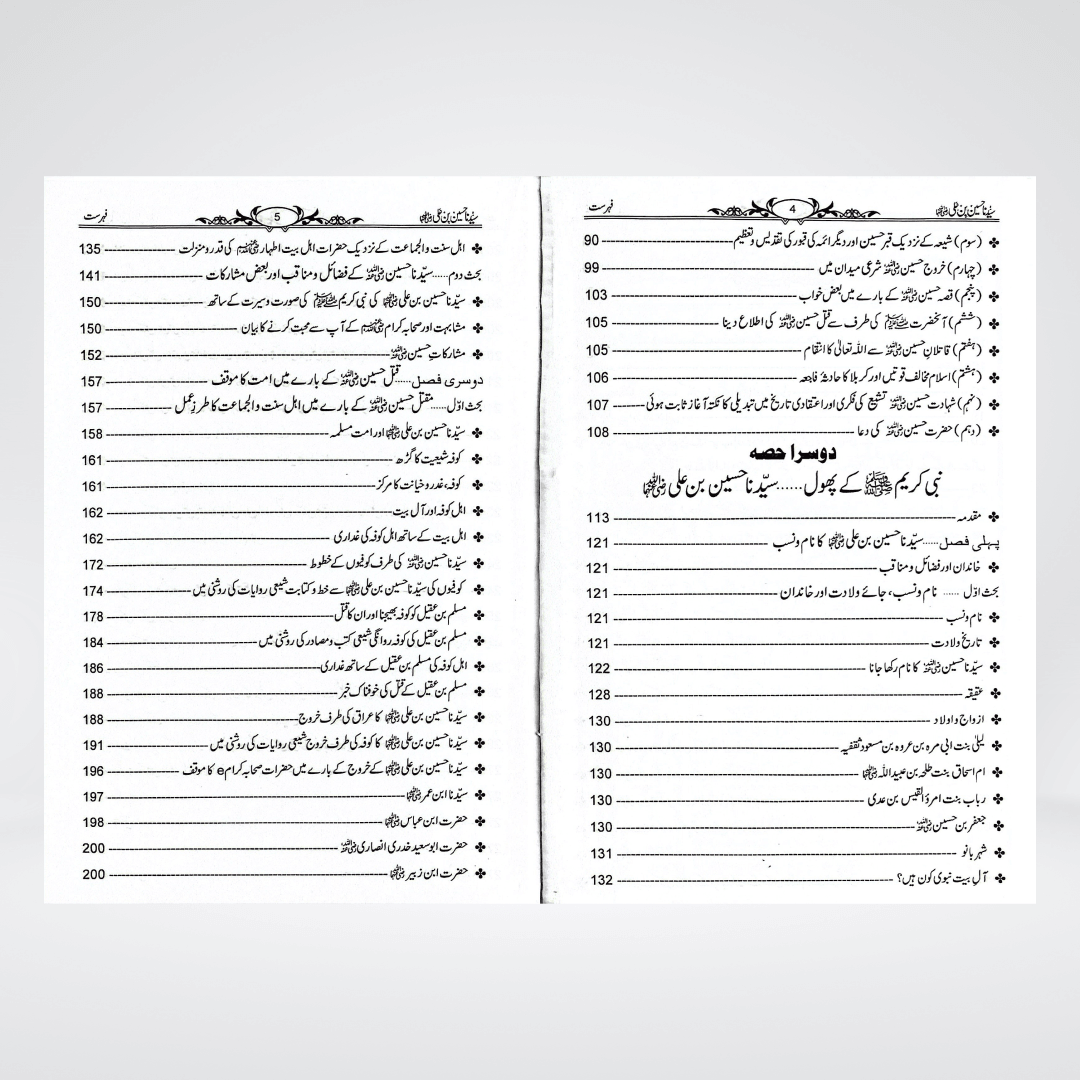 سیّدنا حسین بن علی رضی اللہ عنہما 4 فہرست
(سوم) شیعہ کے نزدیک قبر حسین اور دیگر ائمہ کی قبور کی تقدیس و تعظیم 90
(چہارم) خروج حسین رضی اللہ عنہ شرعی میدان میں 99
(پنجم) قصہ حسین رضی اللہ عنہ کے بارے میں بعض خواب 103
(ششم) آنحضرت ﷺ کی طرف سے قتل حسین رضی اللہ عنہ کی اطلاع دینا 105
(ہفتم) قاتلانِ حسین رضی اللہ عنہ سے اللہ تعالیٰ کا انتقام 105
(ہشتم) اسلام مخالف قوتیں اور کربلا کا حادثۂ فاجعہ 106
(نہم) شہادت حسین رضی اللہ عنہ تشیع کی فکری اور اعتقادی تاریخ میں تبدیلی کا نکتہ آغاز ثابت ہوئی 107
(دہم) حضرت حسین رضی اللہ عنہ کی دعا 108
دوسرا حصہ
نبی کریم ﷺ کے پھول...... سیّدنا حسین بن علی رضی اللہ عنہما
مقدمہ 113
پہلی فصل...... سیّدنا حسین بن علی رضی اللہ عنہما کا نام و نسب 121
خاندان اور فضائل و مناقب 121
بحث اوّل ...... نام و نسب، جائے ولادت اور خاندان 121
نام و نسب 121
تاریخ ولادت 121
سیّدنا حسین رضی اللہ عنہ کا نام رکھا جانا 122
عقیقہ 128
ازواج و اولاد 130
لیلیٰ بنت ابی مرہ بن عروہ بن مسعود ثقفیہ 130
ام اسحاق بنت طلحہ بن عبید اللہ رضی اللہ عنہما 130
رباب بنت امرؤ القیس بن عدی 130
جعفر بن حسین رضی اللہ عنہ 130
شہر بانو 131
آلِ بیت نبوی کون ہیں؟ 132
سیّدنا حسین بن علی رضی اللہ عنہما 5 فہرست
اہل سنت والجماعت کے نزدیک حضرات اہل بیت اطہار رضی اللہ عنہم کی قدر و منزلت 135
بحث دوم...... سیّدنا حسین رضی اللہ عنہ کے فضائل و مناقب اور بعض مشارکات 141
سیّدنا حسین بن علی رضی اللہ عنہما کی نبی کریم ﷺ کی صورت و سیرت کے ساتھ 150
مشابہت اور صحابہ کرام رضی اللہ عنہم کے آپ سے محبت کرنے کا بیان 150
مشارکاتِ حسین رضی اللہ عنہ 152
دوسری فصل...... قتل حسین رضی اللہ عنہ کے بارے میں امت کا موقف 157
بحث اوّل...... مقتل حسین رضی اللہ عنہ کے بارے میں اہل سنت والجماعت کا طرزِ عمل 157
سیّدنا حسین بن علی رضی اللہ عنہما اور امت مسلمہ 158
کوفہ شیعیت کا گڑھ 161
کوفہ، غدر و خیانت کا مرکز 161
اہل کوفہ اور آل بیت 162
اہل بیت کے ساتھ اہل کوفہ کی غداری 162
سیّدنا حسین رضی اللہ عنہ کی طرف کوفیوں کے خطوط 172
کوفیوں کی سیّدنا حسین بن علی رضی اللہ عنہما سے خط و کتابت شیعی روایات کی روشنی میں 174
مسلم بن عقیل کو کوفہ بھیجنا اور ان کا قتل 178
مسلم بن عقیل کی کوفہ روانگی شیعی کتب و مصادر کی روشنی میں 184
اہل کوفہ کی مسلم بن عقیل کے ساتھ غداری 186
مسلم بن عقیل کے قتل کی خوفناک خبر 188
سیّدنا حسین بن علی رضی اللہ عنہما کا عراق کی طرف خروج 188
سیّدنا حسین بن علی رضی اللہ عنہما کا کوفہ کی طرف خروج شیعی روایات کی روشنی میں 191
سیّدنا حسین بن علی رضی اللہ عنہما کے خروج کے بارے میں حضرات صحابہ کرام e کا موقف 196
سیّدنا ابن عمر رضی اللہ عنہما 197
حضرت ابن عباس رضی اللہ عنہما 198
حضرت ابو سعید خدری انصاری رضی اللہ عنہ 200
حضرت ابن زبیر رضی اللہ عنہما 200